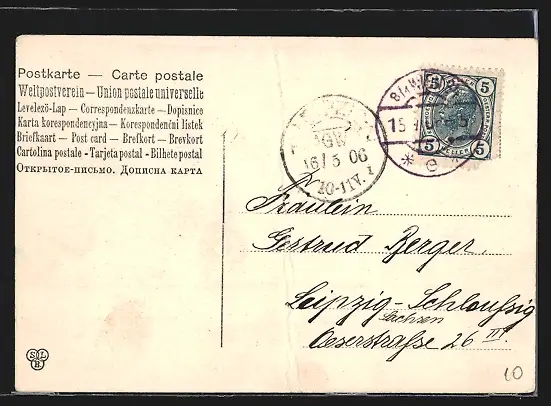 Postkarte — Carte postale
Weltpostverein — Union postale universelle
Levelező-Lap — Correspondenzkarte — Dopisnice
Karta korespondencyjna — Korespondenční listek
Briefkaart — Post card — Brefkort — Brevkort
Cartolina postale - Tarjeta postal - Bilhete postal
Открытое-письмо. Дописна карта
16/5 06
10-11V.
15
* e *
5 5
5 5
Fräulein
Gertrud Berger.
Leipzig-Schleussig
Sachsen
Oeserstraße 26 III.
S L
B
60